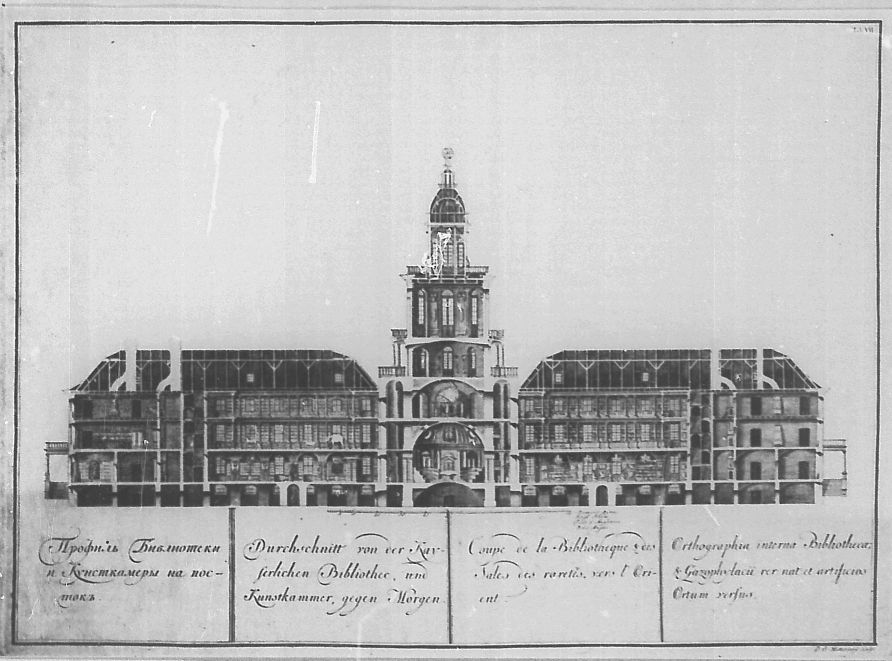 Профиль Библиотеки
и Кунсткамеры на пос-
токъ.
Durchschnitt von der Kay-
serlichen Bibliothec, und
Kunstkammer, gegen Morgen.
Coupe de la Bibliotheque & des
Sales des raretés, vers l'Ori-
ent.
Orthographia interna Bibliothecæ
& Gazophylacii rer nat et artificios
Ortum versus.